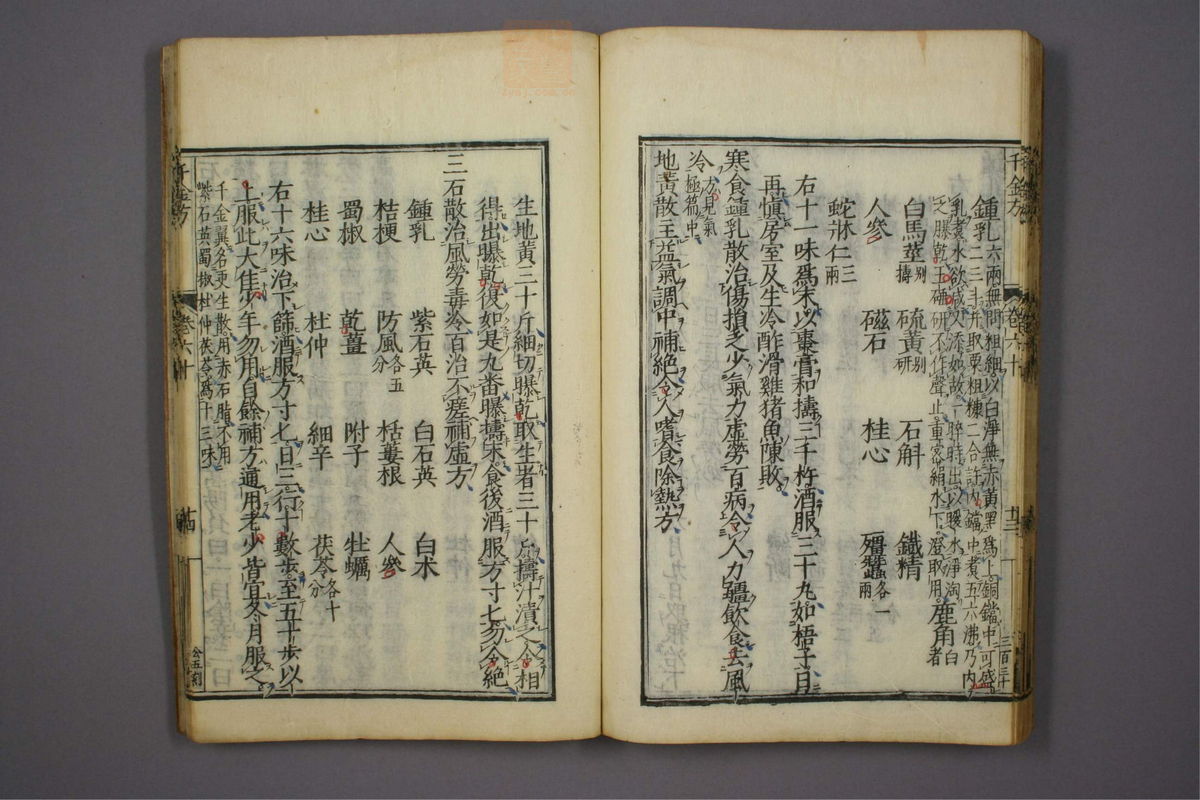 千金方 卷六十 廿三
鍾乳六兩無問粗細以白淨無赤黃黑爲上銅鐺中可盛
二三斗并取粟粗糠二合許內鐺中煮五六沸乃內
乳煮水欲減又添如故一晬時出以暖水淨淘
之曝乾玉碪研不作聲止重密絹水下澄取用 鹿角白者
白馬莖別擣 硫黃別研 石斛 鐵精
人參 磁石 桂心 殭蠶各一兩
蛇牀仁三兩
右十一味爲末以棗膏和擣三千杵酒服三十丸如梧子日
再愼房室及生冷酢滑雞猪魚陳敗
寒食鍾乳散治傷損乏少氣力虛勞百病令人力強飲食去風
冷方見氣極篇中
地黃散主益氣調中補絕令人嗜食除熱方
生地黃三十斤細切曝乾取生者三十斤擣汁漬之令相
得出曝乾復如是九番曝擣末食後酒服方寸匕勿令絕
三石散治風勞毒冷百治不瘥補虛方
鍾乳 紫石英 白石英 白朮
桔梗 防風各五分 栝蔞根 人參
蜀椒 乾薑 附子 牡蠣
桂心 杜仲 細辛 茯苓各十分
右十六味治下篩酒服方寸匕日三行十數步至五十步以
上服此大佳少年勿用自餘補方通用老少皆宜冬月服之
千金翼名更生散用赤石脂不用
紫石英蜀椒杜仲茯苓爲十三味
千金方 卷六十 廿四